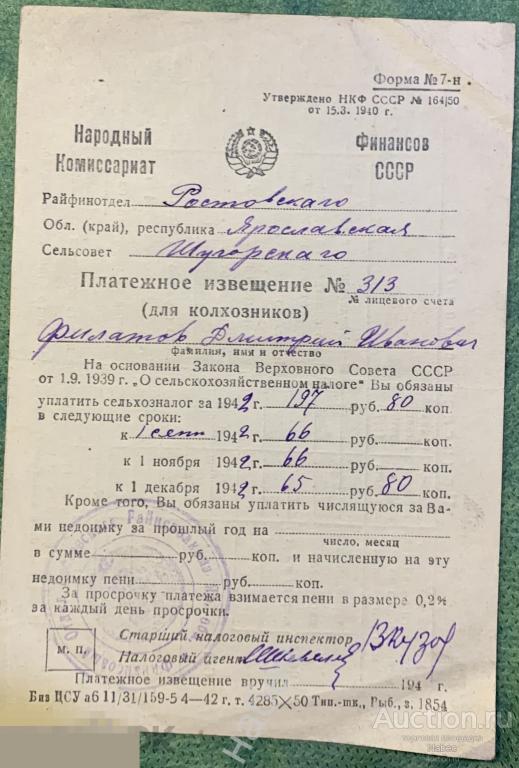 Форма № 7-н
Утверждено НКФ СССР № 164|50
от 15.3. 1940 г.
Народный Комиссариат
Финансов СССР
Райфинотдел Ростовскаго
Обл. (край), республика Ярославская
Сельсовет Шугорскаго
Платежное извещение № 313
(для колхозников) № лицевого счета
Филатов Дмитрий Иванович
фамилия, имя и отчество
На основании Закона Верховного Совета СССР
от 1.9. 1939 г. „О сельскохозяйственном налоге" Вы обязаны
уплатить сельхозналог за 1942 г. 197 руб. 80 коп.
в следующие сроки:
к 1 сент 1942 г. 66 руб. коп.
к 1 ноября 1942 г. 66 руб. коп.
к 1 декабря 1942 г. 65 руб. 80 коп.
Кроме того, Вы обязаны уплатить числящуюся за Ва-
ми недоимку за прошлый год на
число, месяц
в сумме руб. коп. и начисленную на эту
недоимку пени руб. коп.
За просрочку платежа взимается пени в размере 0,2%
за каждый день просрочки.
Старший налоговый инспектор
м. п.
Налоговый агент
Платежное извещение вручил 194 г.
Биз ЦСУ аб 11/31/159-5 4—42 г. т. 4285×50 Тип.-шк., Рыб., з. 1854
Auction.ru
торговая площадка